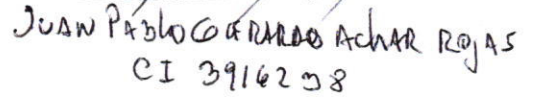 JUAN PABLO GERARDO ACHAR ROJAS
CI 3916298